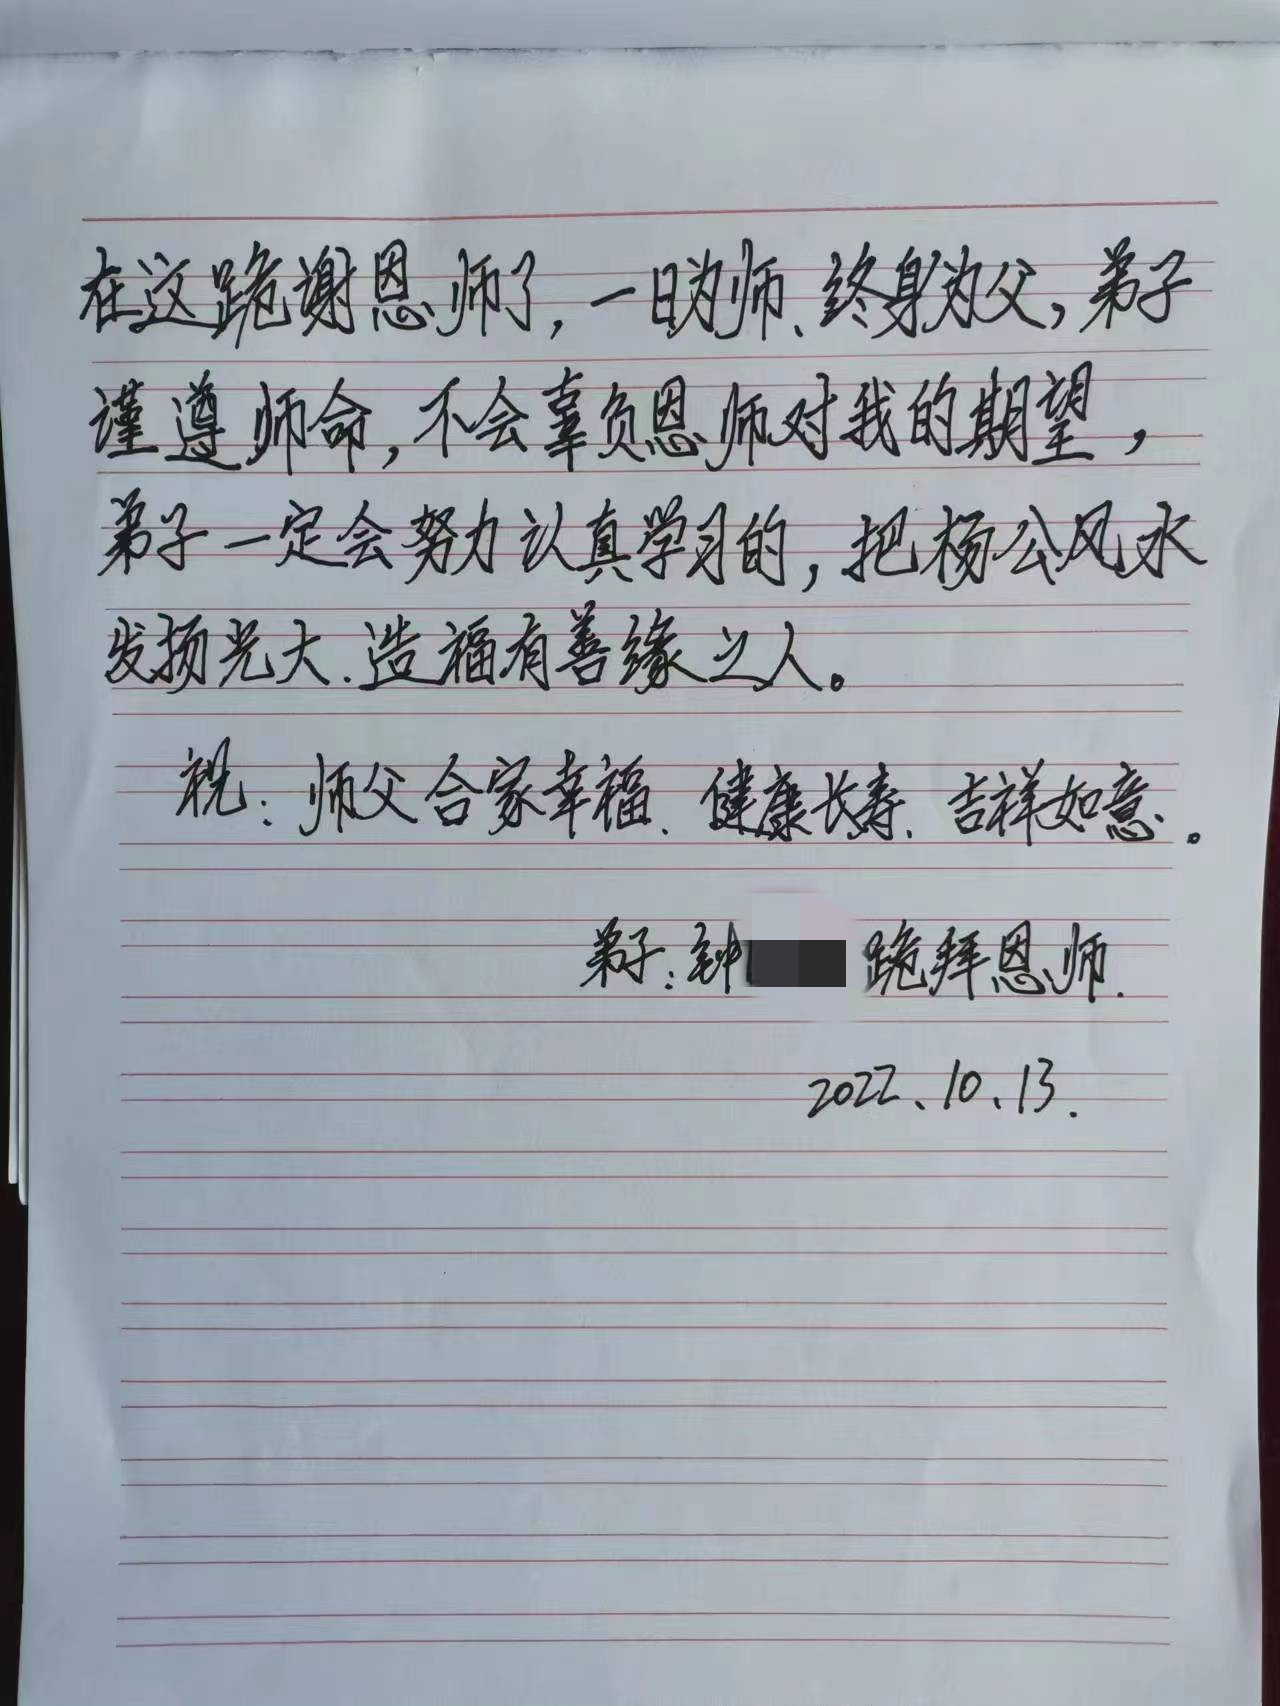 在这跪谢恩师了，一日为师、终身为父，弟子
谨遵师命，不会辜负恩师对我的期望，
弟子一定会努力认真学习的，把杨公风水
发扬光大、造福有善缘之人。
祝：师父合家幸福、健康长寿、吉祥如意。
弟子：钟 跪拜恩师.
2022、10、13.